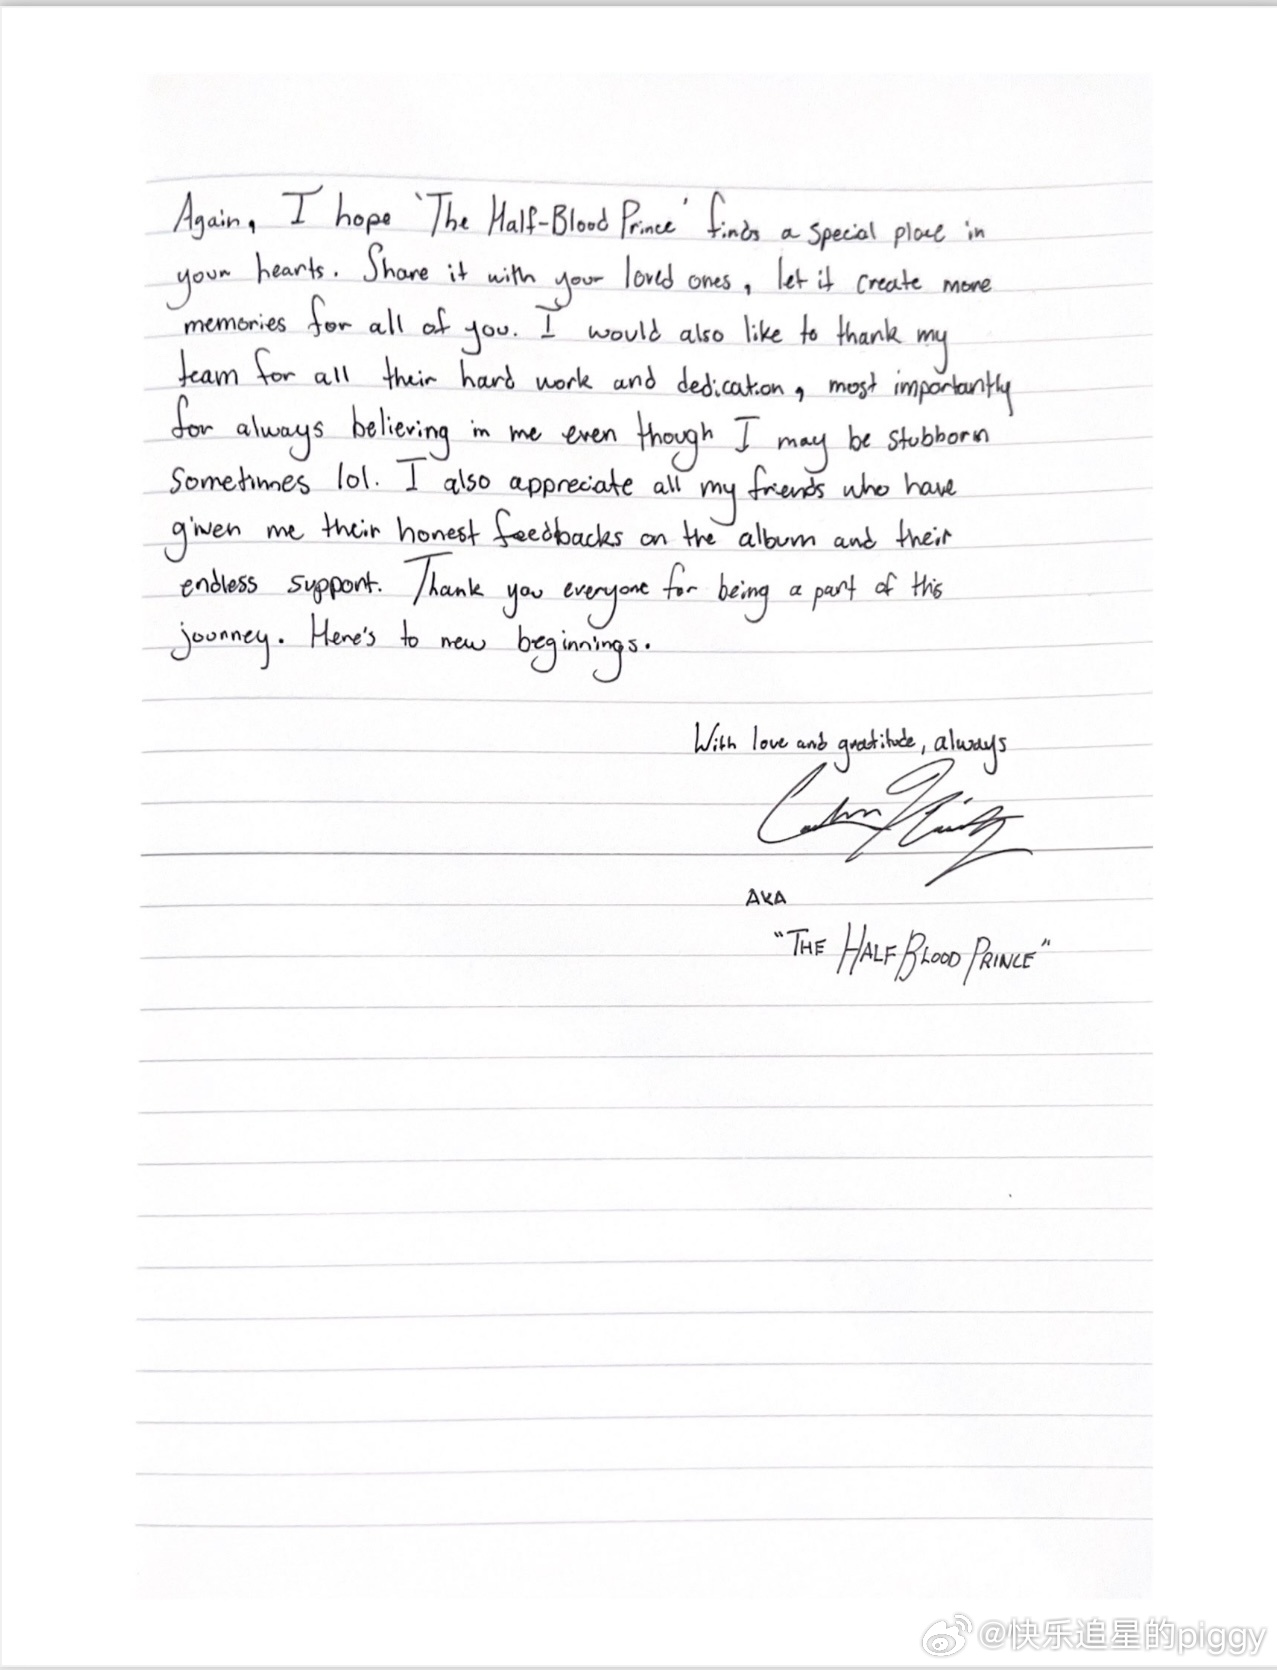 Again, I hope 'The Half-Blood Prince' finds a special place in
your hearts. Share it with your loved ones, let it create more
memories for all of you. I would also like to thank my
team for all their hard work and dedication, most importantly
for always believing in me even though I may be stubborn
sometimes lol. I also appreciate all my friends who have
given me their honest feedbacks on the album and their
endless support. Thank you everyone for being a part of this
journey. Here's to new beginnings.
With love and gratitude, always
AKA
"THE HALF BLOOD PRINCE"
@快乐追星的piggy